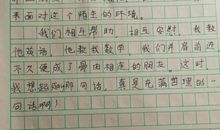 来面对这个陌生的环境。
我们相互帮助,相互安慰,我教
他英语,他教我数学,我们并肩前进
不久便成了骨肉相连的朋友。这时,
我想起妈妈那句话,真是充满哲理的一
句话啊!